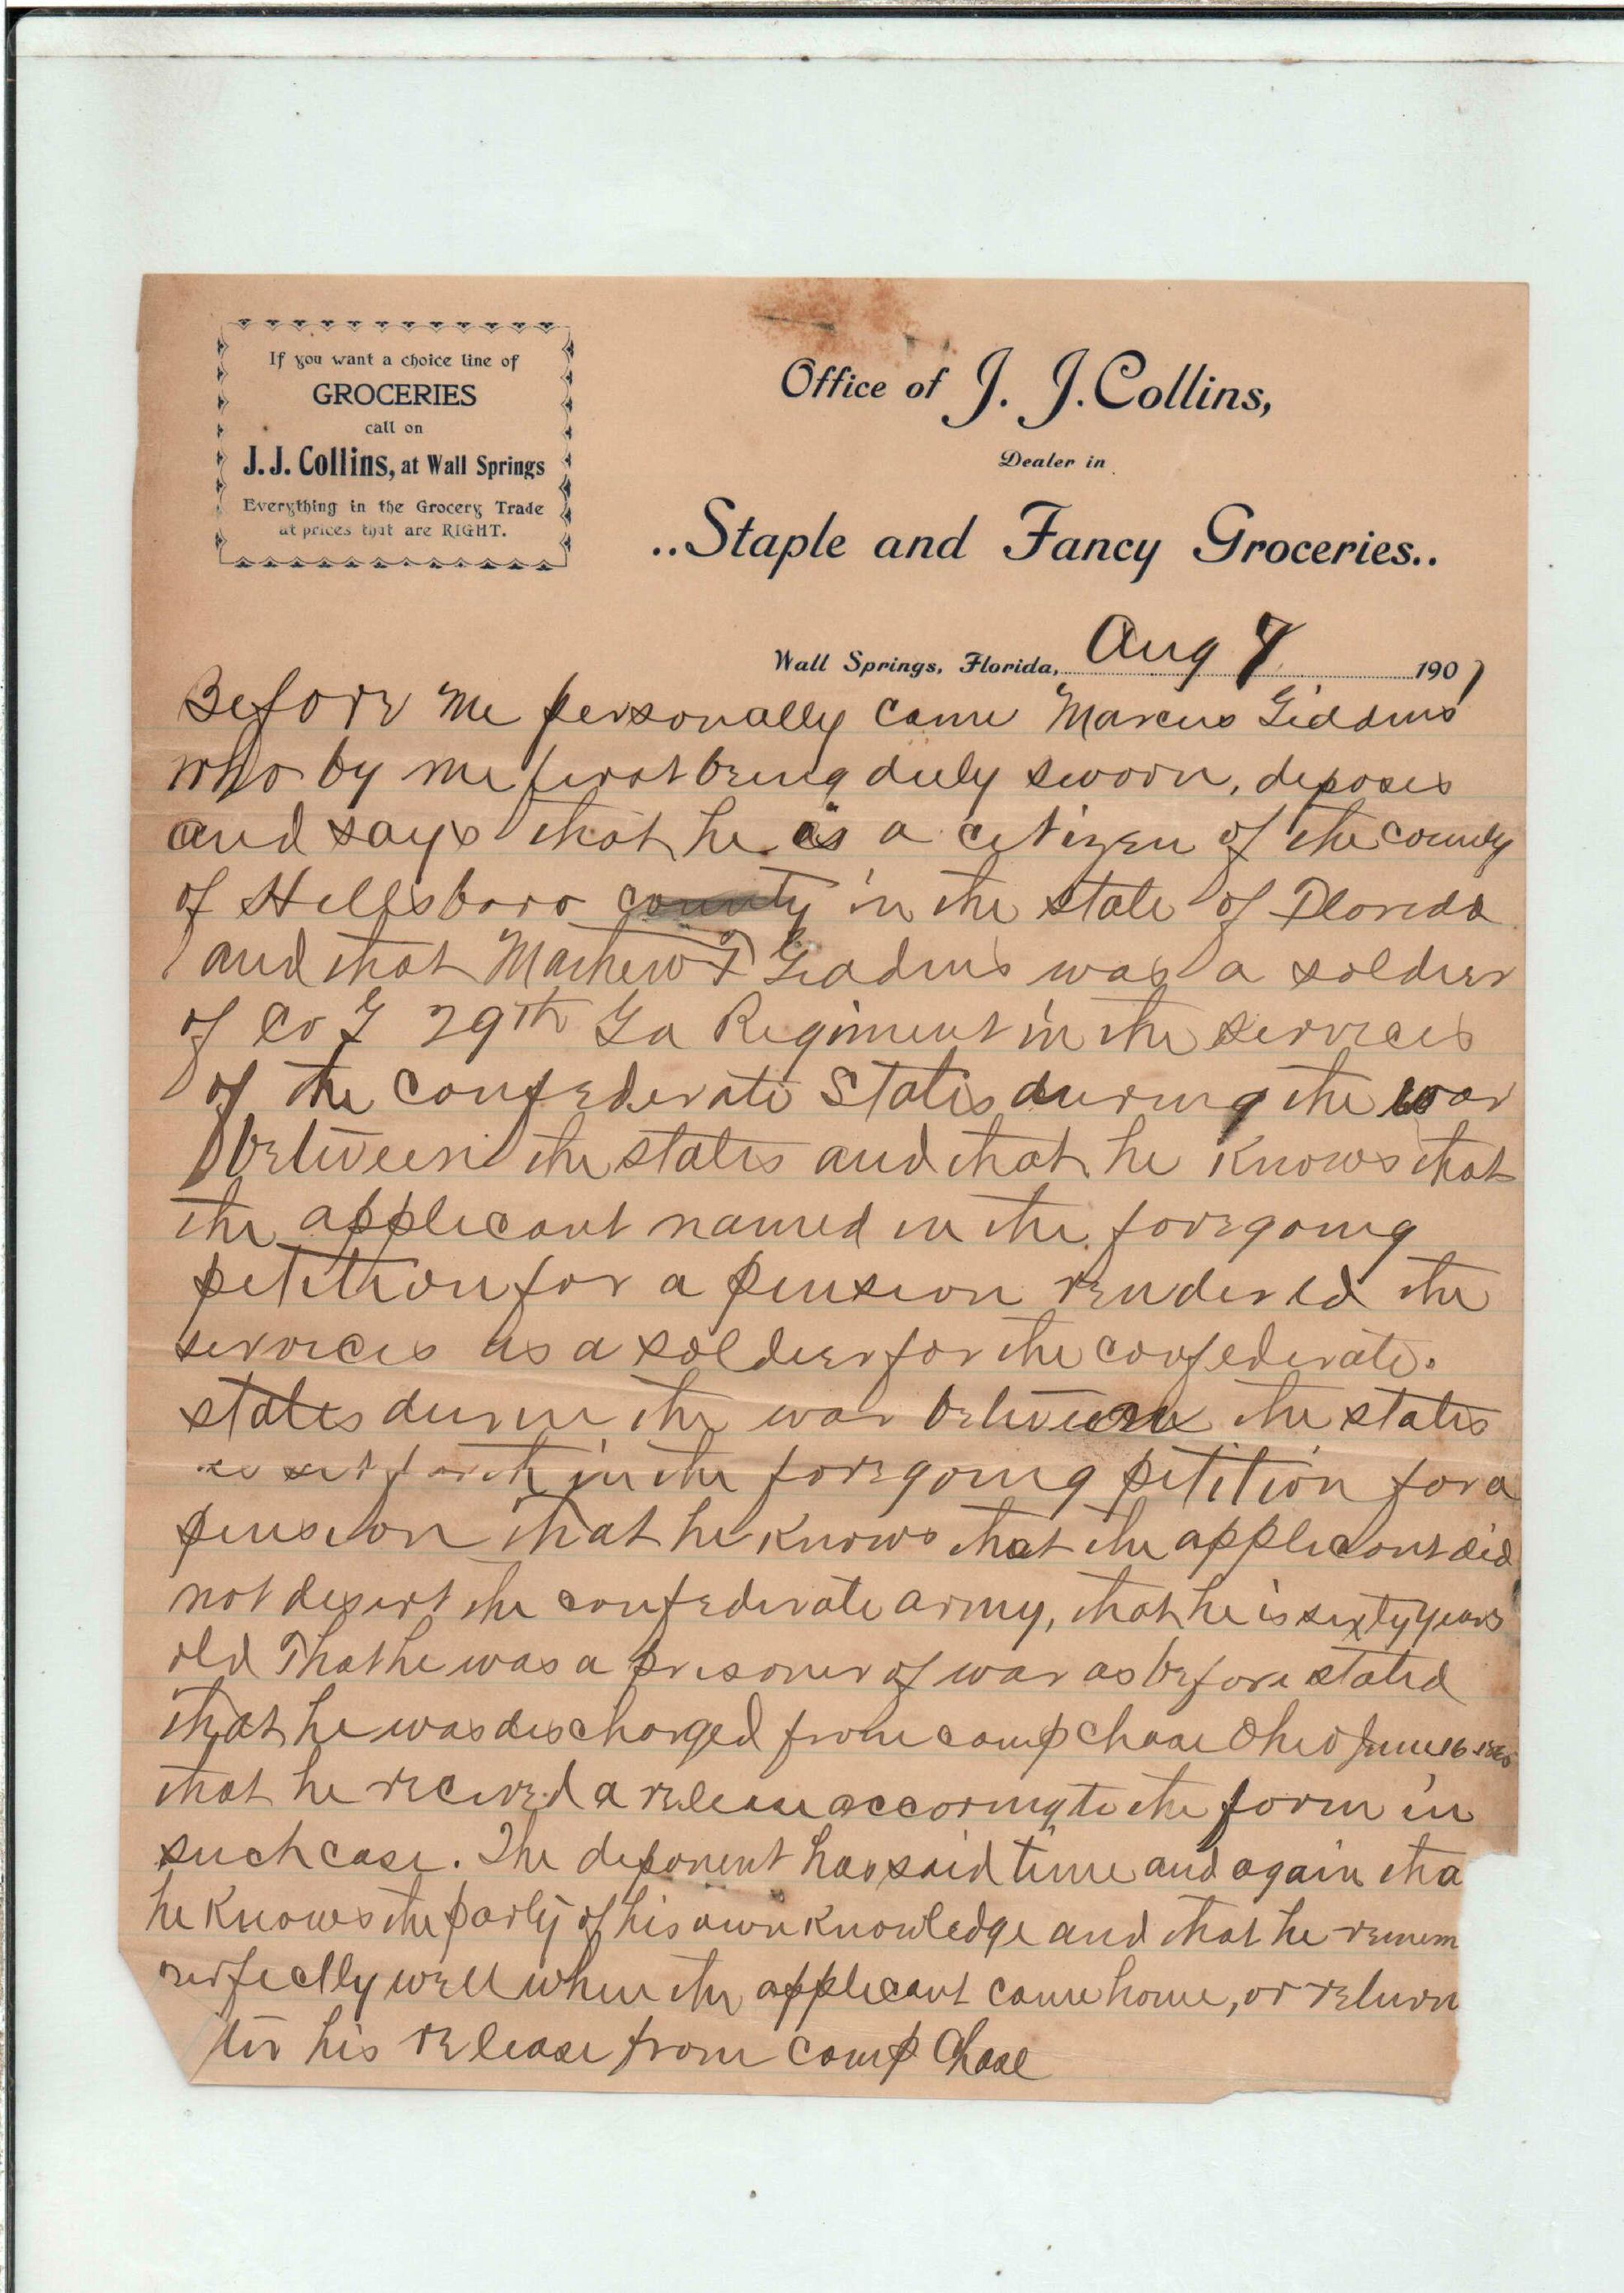 If you want a choice line of
GROCERIES
call on
J. J. Collins, at Wall Springs
Everything in the Grocery Trade
at prices that are RIGHT.
Office of J. J. Collins,
Dealer in
..Staple and Fancy Groceries..
Wall Springs, Florida, Aug 7 1907
Before me personally came Marcus Giddins
who by me first being duly sworn, deposes
and says that he is a citizen of the county
of Hillsboro county in the state of Florida
and that Mathew F Giddins was a soldier
of Co G 29th Ga Regiment in the services
of the confederate States during the war
between the states and that he knows that
the applicant named in the foregoing
petition for a pension rendered the
services as a soldier for the confederate.
states durine the war between the states
as set forth in the foregoing petition for a
pension that he knows that the applicant did
not desert the confederate army, that he is sixty years
old That he was a prisoner of war as before stated
that he was discharged from camp chase Ohio June 16 1865
that he recived a release accoring to the form in
such case. The deponent has said time and again tha
he knows the party of his own knowledge and that he remem
perfectly well when the applicant came home, or return
his release from camp Chase